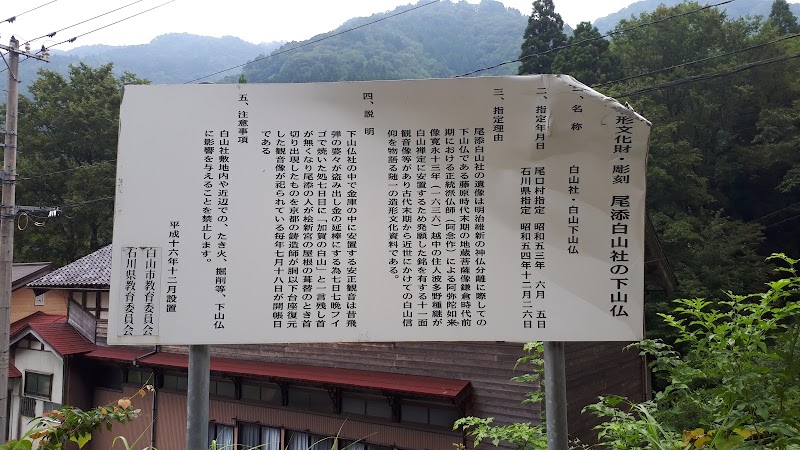 形文化財・彫刻　尾添白山社の下山仏
一、名　称　　白山社・白山下山仏
二、指定年月日　尾口村指定　昭和五三年　六月　五日
石川県指定　昭和五四年十二月二六日
三、指定理由
尾添白山社の遺像は明治維新の神仏分離に際しての
下山仏である藤原時代末期の地蔵菩薩像鎌倉時代前
期における正統派仏師（阿念作）による阿弥陀如来
像寛永十三年（一六三六）越中の住人波多野種継が
白山禅定に安置するため発願した銘を有する十一面
観音像等があり古代末期から近世にかけての白山信
仰を物語る随一の造形文化資料である。
四、説　明
下山仏社の中で金庫の中に安置する安正観音は昔飛
弾の婆々が盗み出し金の延棒にする為七日七晩フイ
ゴで焼いた処七日目に「加賀の白山」と一言残し首
が無くなり尾添の人が絵新宮の屋根の葺替のとき首
切り出現したものを京都の鋳造師が胴以下台座復元
した観音像が祀られている毎年七月十八日が開帳日
である
五、注意事項
白山社敷地内や近辺での、たき火、掘削等、下山仏
に影響を与えることを禁止します。
平成十六年十二月設置
白山市教育委員会
石川県教育委員会